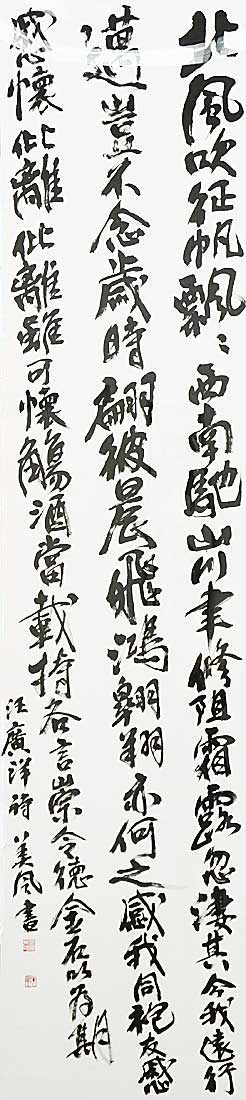 北風吹征帆飄〻西南馳山川聿修阻霜露忽淒其今我遠行
邁豈不念歲時翩彼晨飛鴻翱翔亦何之感我同袍友感
感懷仳離仳離雖可懷觴酒當載持各言崇令德金石以為期
汪廣洋詩 美風書